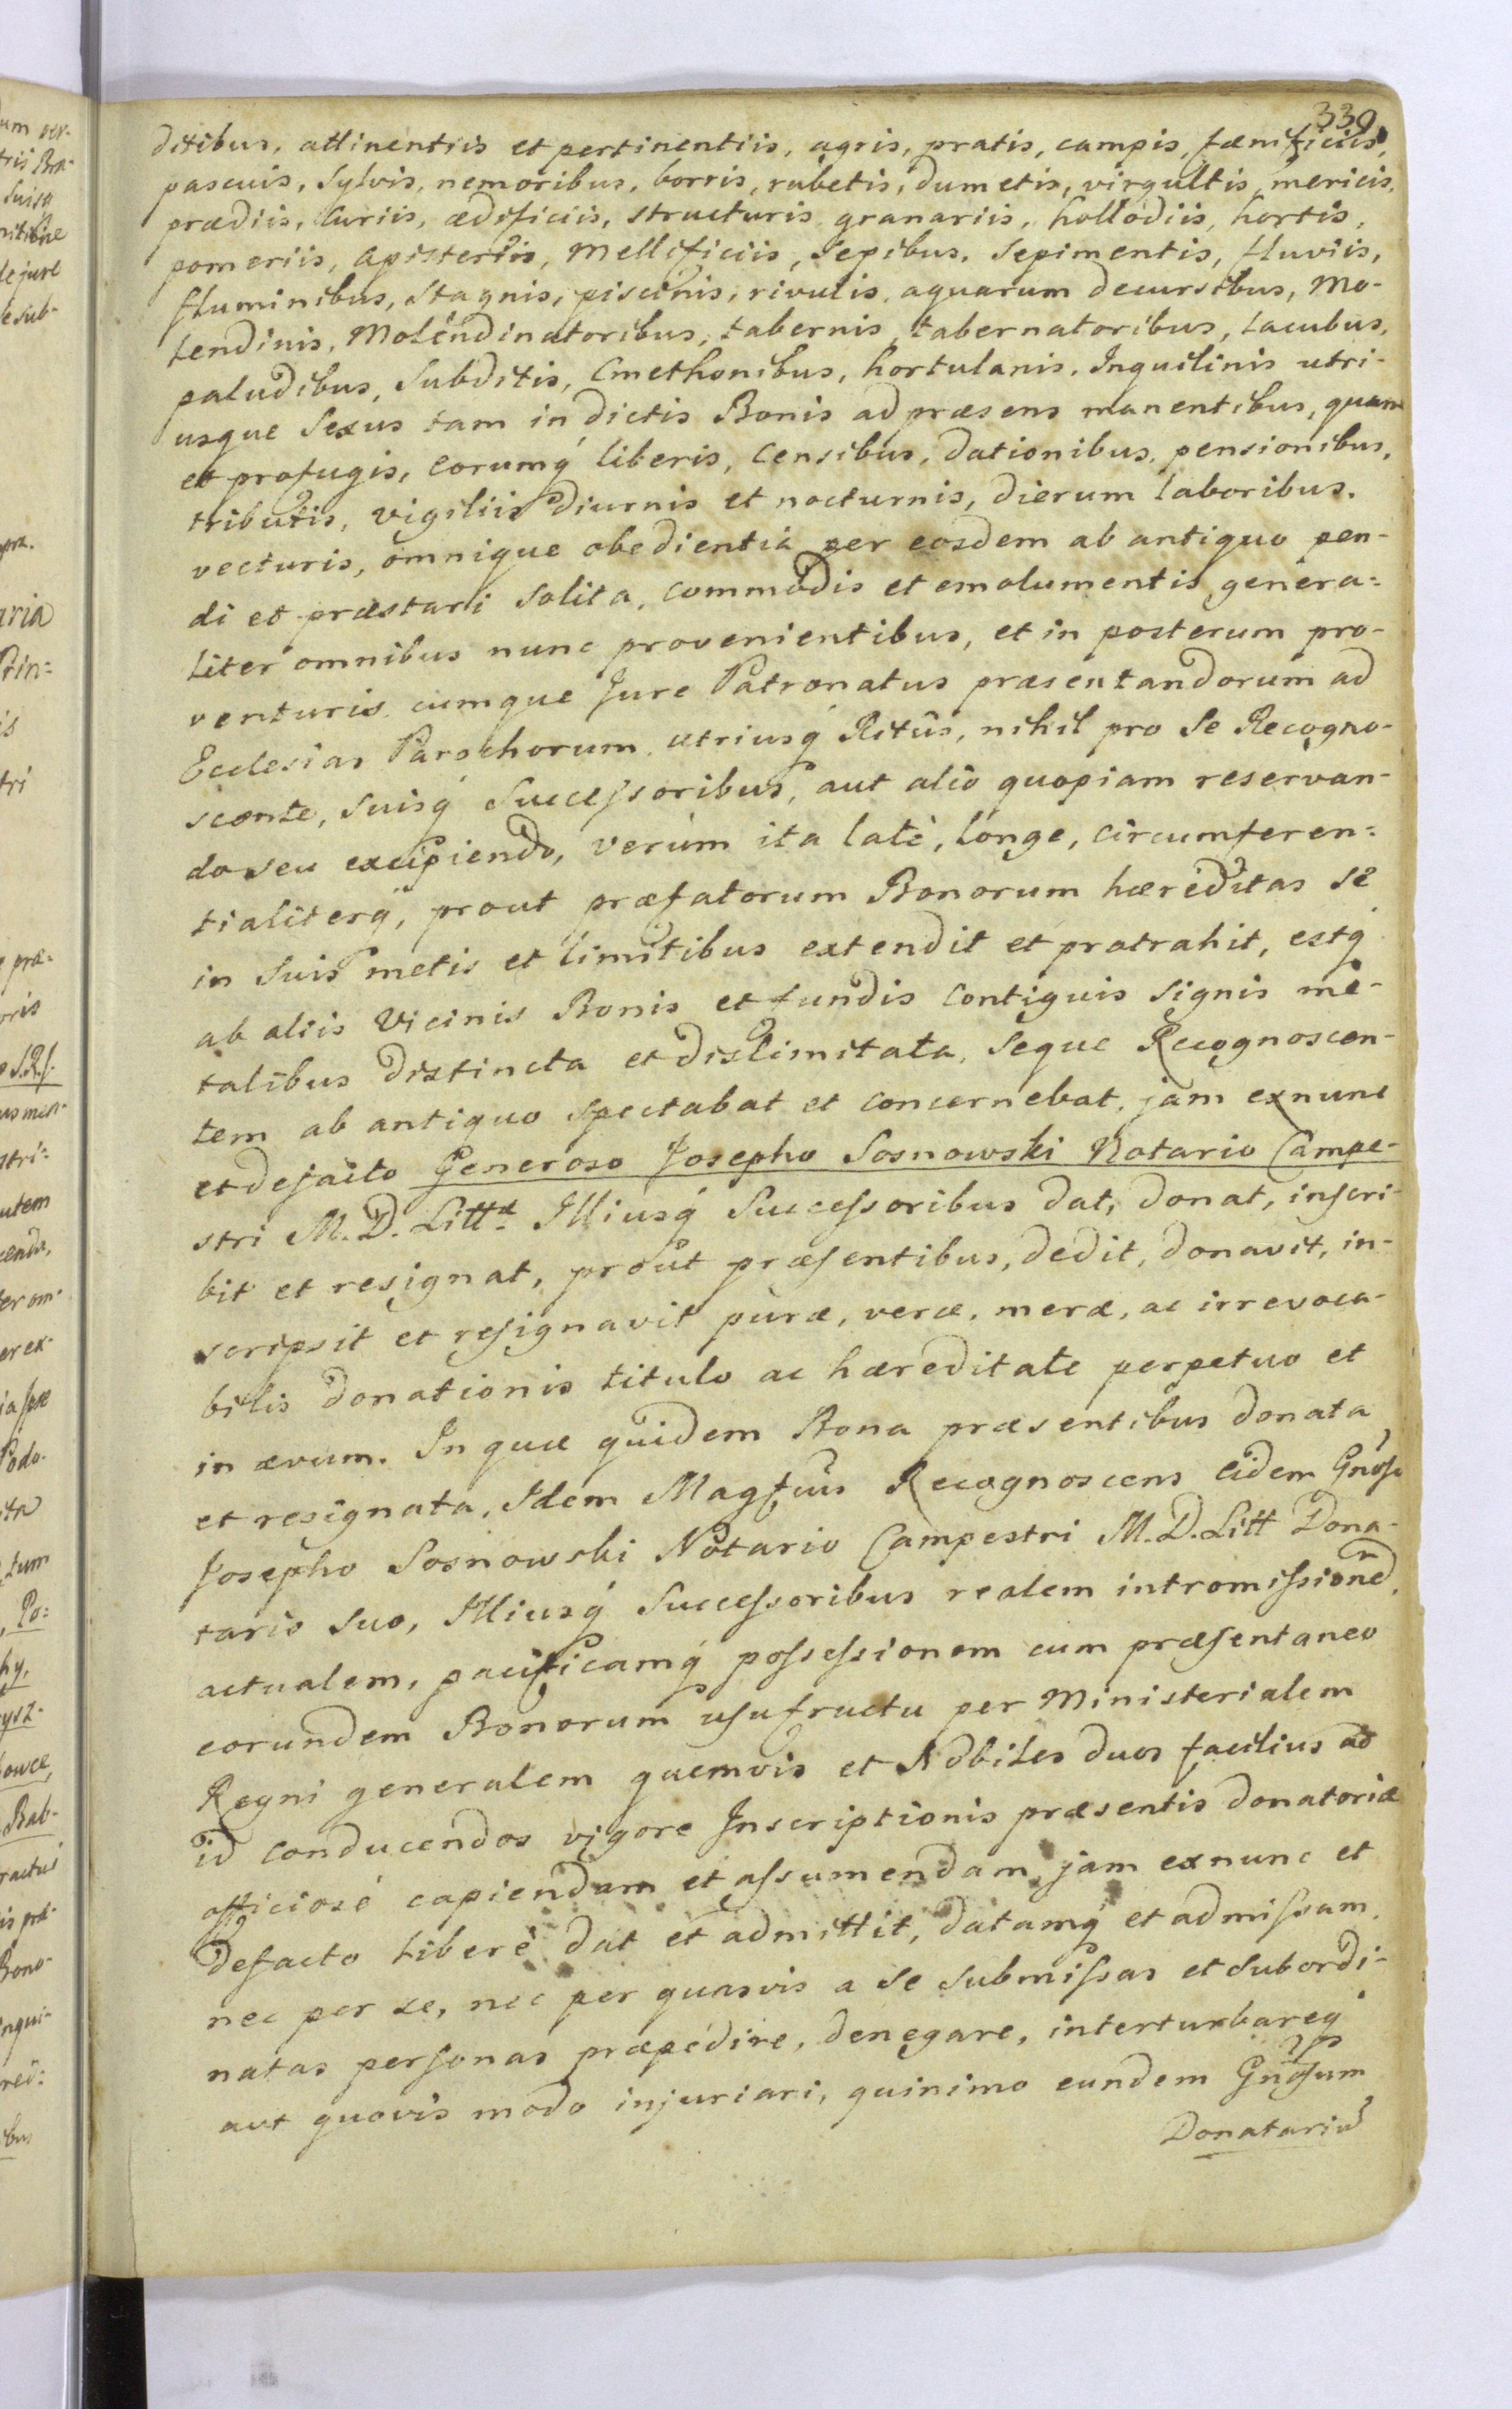 339
ditibus, attinentiis et pertinentiis, agris, pratis, campis, fænificiis,
pascuis, Sylvis, nemoribus, borris, rubetis, dumetis, virgultis, mericis,
prædiis, Curiis, ædificiis, structuris, granariis, hollodiis, hortis,
pomeriis, apisteriis, Mellificiis, Sepibus, Sepimentis, fluviis,
fluminibus, Stagnis, piscinis, rivulis, aquarum decursibus, Mo-
lendinis, Molendinatoribus, tabernis, tabernatoribus, lacubus,
paludibus, Subditis, Cmethonibus, hortulanis, Inquilinis utri-
usque Sexus tam in dictis Bonis ad præsens manentibus, quam
et profugis, eorumq́ liberis, Censibus, dationibus, pensionibus,
tributis, vigiliis diurnis et nocturnis, dierum laboribus,
vecturis, omnique obedientia per eosdem ab antiquo pen-
di et præstari Solita, commodis et emolumentis genera=
liter omnibus nunc provenientibus, et in posterum pro-
venturis cumque Jure Patronatus præsentandorum ad
Ecclesias Parochorum utriusq́ Ritûs, nihil pro Se Recogno-
scente, Suisq́ Successoribus, aut alio quopiam reservan-
do seu excipiendo, verùm ita latè, longe, circumferen=
tialiterq́, prout præfatorum Bonorum hæreditas se
in Suis metis et limitibus extendit et protrahit, estq́
ab aliis Vicinis Bonis et fundis Contiguis Signis me-
talibus distincta et dislimitata, Seque Recognoscen-
tem ab antiquo Spectabat et concernebat, jam exnunc
et defacto Generoso Josepho Sosnowski Notario Campe-
stri M. D. Littæ Illiusq́ Successoribus dat, donat, inscri-
bit et resignat, proùt præsentibus, dedit, donavit, in-
scripsit et resignavit puræ, veræ, meræ, ac irrevoca-
bilis donationis titulo ac hæreditate perpetuo et
in ævum. In quæ quidem Bona præsentibus donata
et resignata, Idem Magfcus Recognoscens eidem Gnoso
Josepho Sosnowski Notario Campestri M. D. Litt Dona-
tario Suo, Illiusq́ Successoribus realem intromissionem,
actualem, pacificamq́ possessionem cum præsentaneo
eorundem Bonorum usufructu per Ministerialem
Regni generalem quemvis et Nobiles duos facilius ad
id conducendos vigore Inscriptionis præsentis donatoriæ
officiosé capiendam et assumendam, jam exnunc et
defacto liberè dat et admittit, datamq́ et admissam,
nec per se, nec per quasvis a Se Submissas et Subordi-
natas personas præpedire, denegare, interturbareq́
aut quovis modo injuriari, quinimo eundem Gnosum
Donatarium